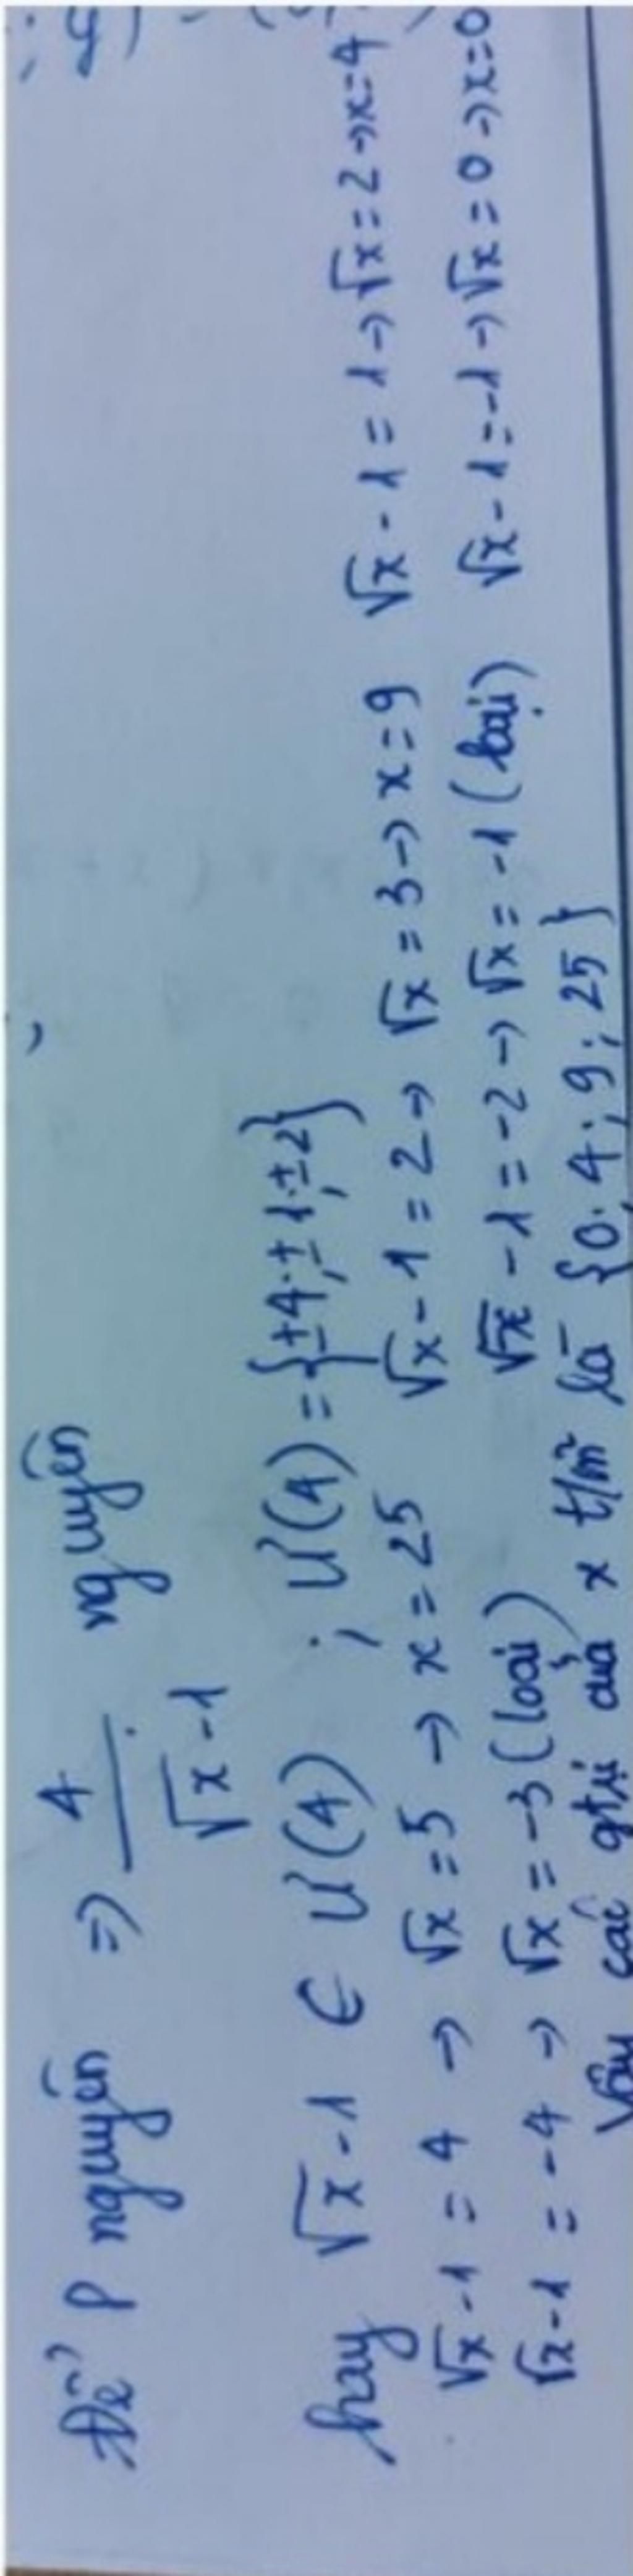 Để P nguyên => 4/(√x - 1) nguyên
hay √x - 1 ∈ Ư(4) ; Ư(4) = {±4; ±1; ±2}
√x - 1 = 4 → √x = 5 → x = 25 √x - 1 = 2 → √x = 3 → x = 9 √x - 1 = 1 → √x = 2 → x = 4
√x - 1 = -4 → √x = -3 (loại) √x - 1 = -2 → √x = -1 (loại) √x - 1 = -1 → √x = 0 → x = 0
Vậy các gtrị của x t/m là {0; 4; 9; 25}